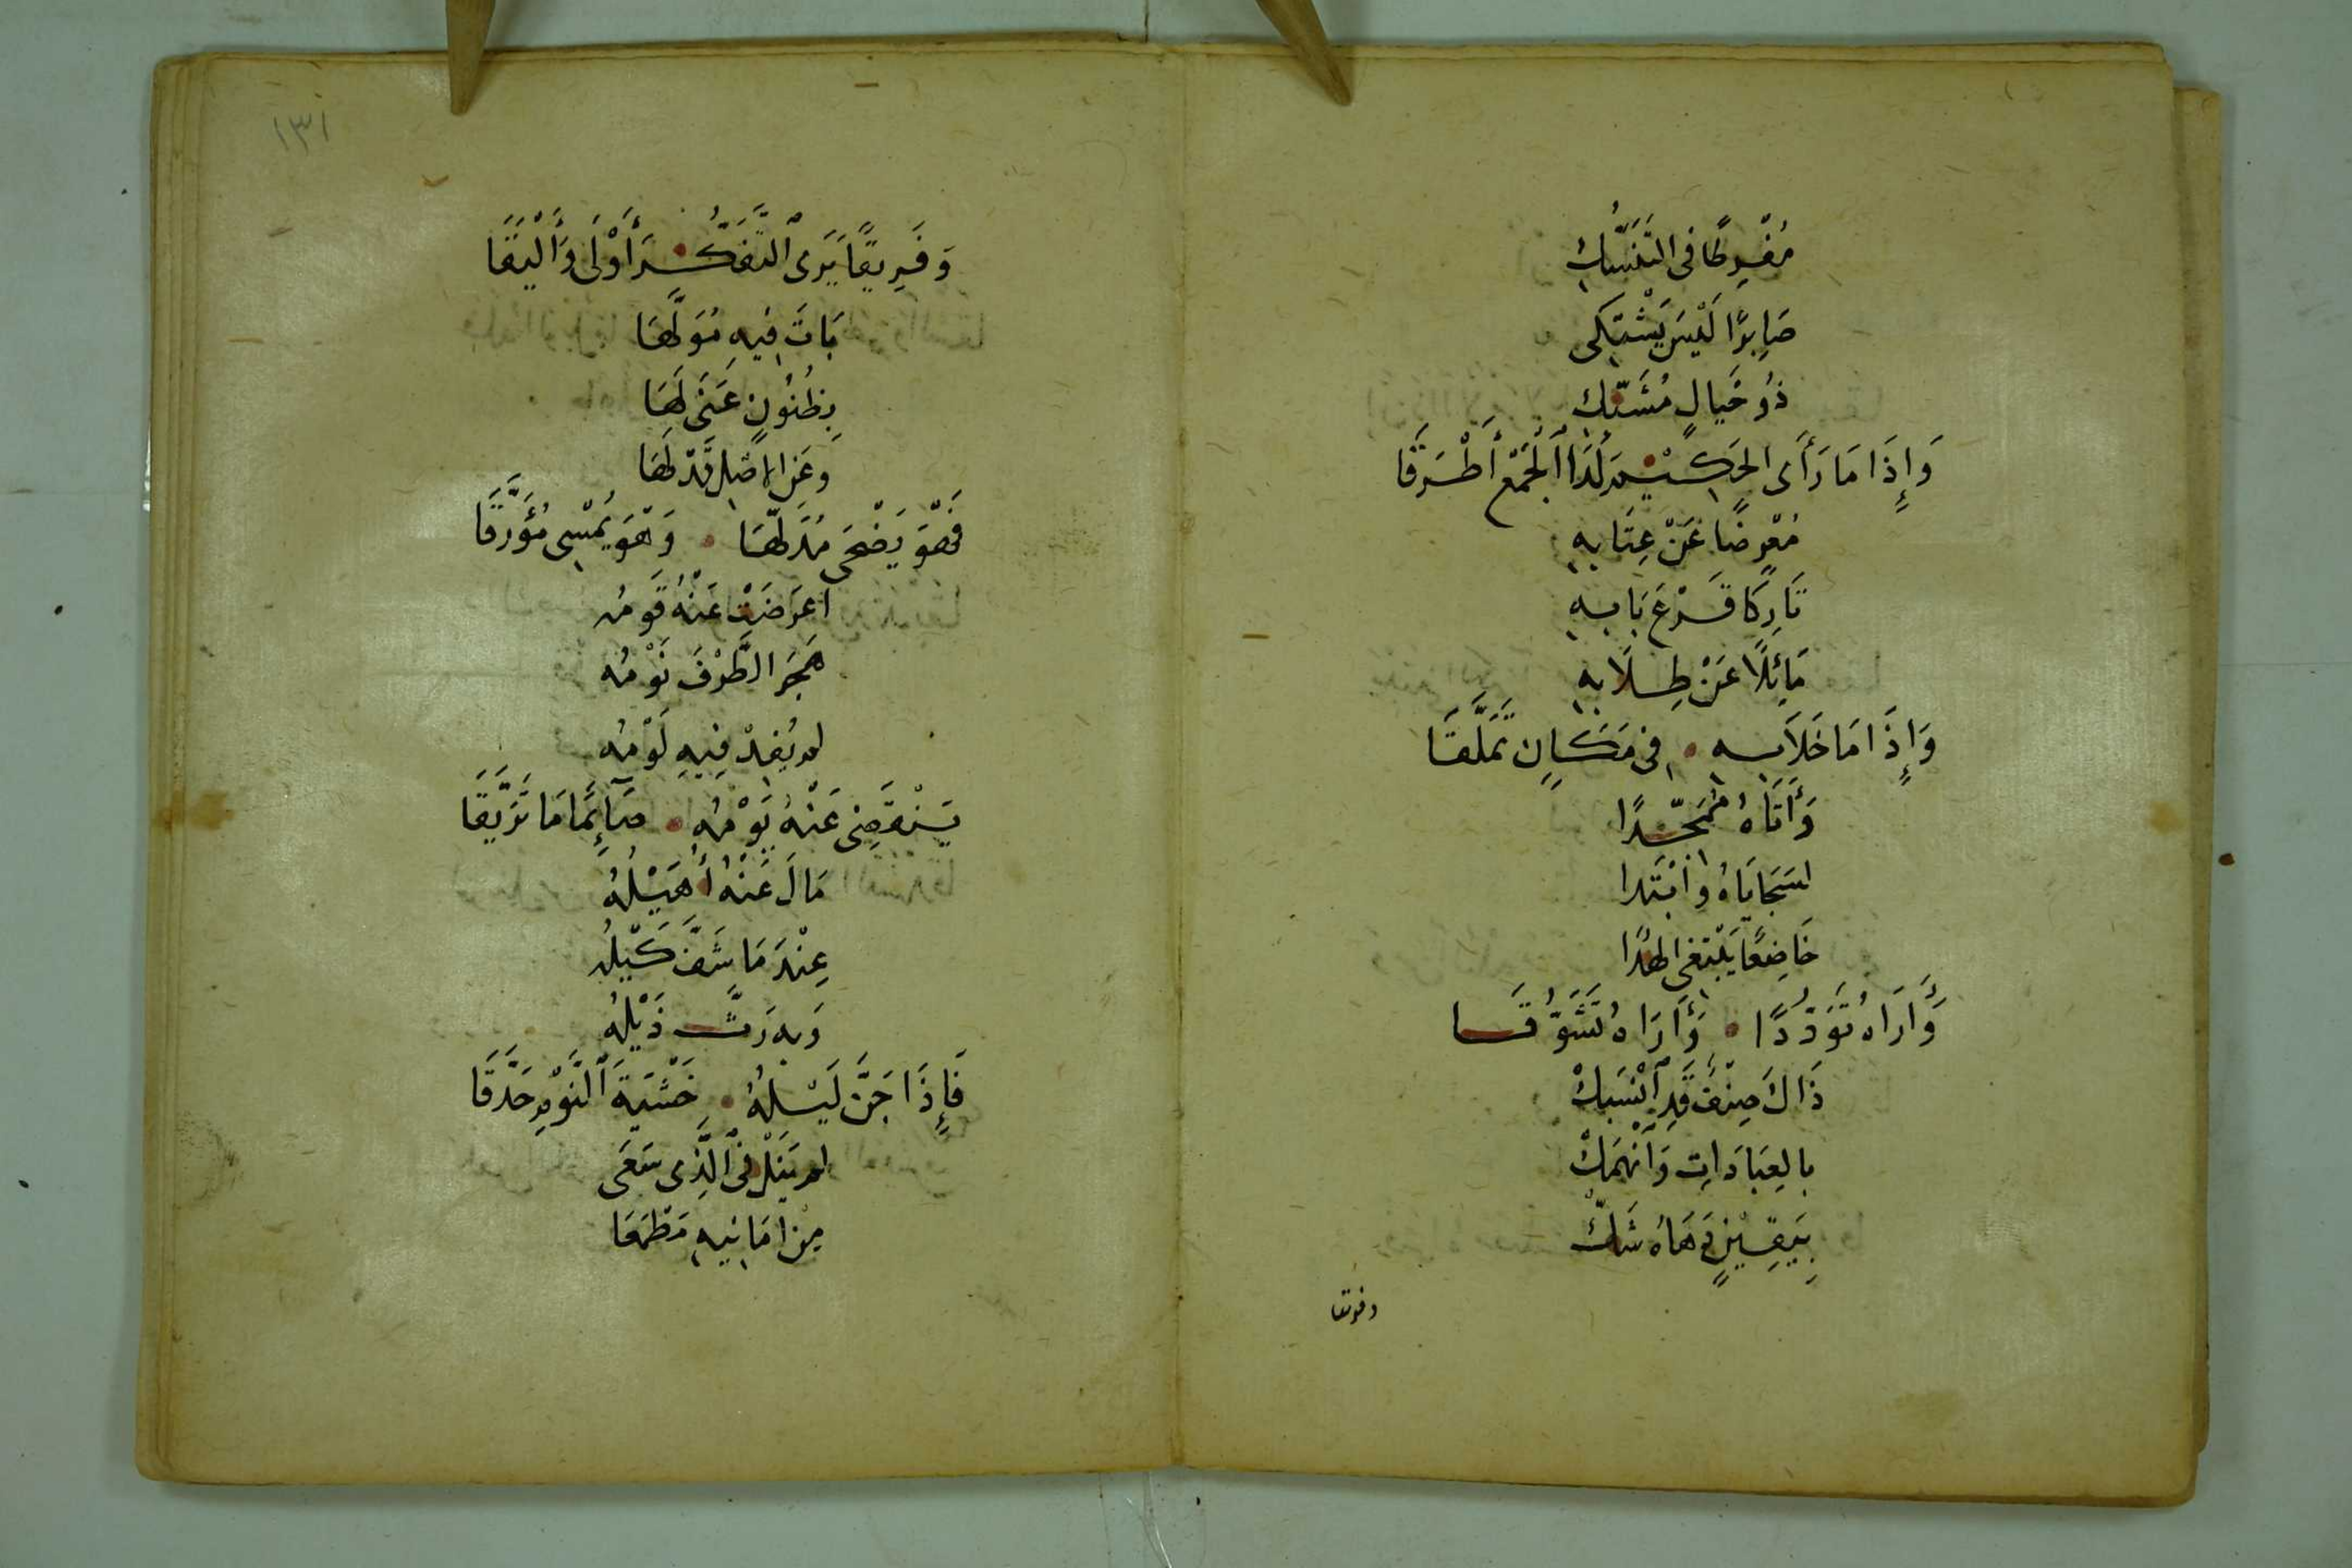 مُفْرِطًا فى التَنَسُّكِ
صَابِرًا لَيْسَ يَشْتَكِى
ذُو خَيَالٍ مُشَبَّكِ
وَإِذَا مَا رَأَى الحَكِيْمَ لَدَا الجَمْعِ أَطْرَقَا
مُعْرِضًا عَنْ عِتَابِهِ
تَارِكًا قَرْعَ بَابِهِ
مَائِلًا عَنْ طِلَابِهِ
وَإِذَا مَا خَلَا بِهِ • فِى مَكَانٍ تَمَلَّقَا
وَأَتَاهُ مُمَجِّدًا
لسَجَايَاهُ وابْتَدا
خَاضِعًا يَبْتَغى الهُدَا
وَأَرَاهُ تَوَدُّدًا • وَأَرَاهُ تَشَوُّقَا
ذَاكَ صِنْفٌ قَدِ انْسَبَكْ
بالعِبَادَاتِ وَانْهَمَكْ
بِيَقِيْنٍ دَهَاهُ شَكّْ
وفريقا
١٣١
وَفَرِيقًا يَرَى التَّفَكُّرَ أَوْلَى وَأَلْيَقَا
بَاتَ فِيهِ مُوَلَّهَا
بِظُنُونٍ عَنَى لَهَا
وعَنِ الاصْلِ قَدْ لَهَا
فَهْوَ يَضْحَى مُدَلَّهَا • وَهْوَ يُمْسِى مُؤَرَّقَا
اعرَضَتْ عَنْهُ قَومُه
هَجَرَ الطَّرْفَ نَوْمُه
لم يُفِدْ فِيهِ لَوْمُه
يَنْقَضِى عَنْهُ يَوْمُهُ • صَآئِمًا مَا تَرَيَّقَا
مَالَ عَنْهُ أُهَيْلُهُ
عِنْدَ مَا شَفَّ كَيْلُه
وَبِهِ رَثَّ ذَيْلُهُ
فَإِذَا جَنَّ لَيْلُهُ • خَشْيَةَ النَّوْمِ حَدَّقَا
لم يَنَلْ فِى الَّذِى سَعَى
مِنْ امَانِيهِ مَطْمَعَا